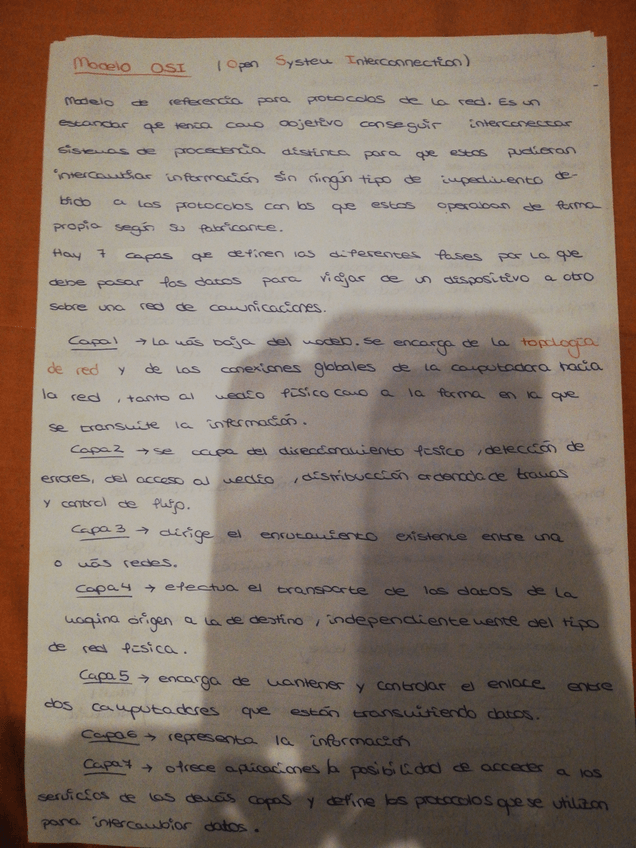 Modelo OSI (Open System Interconnection)
Modelo de referencia para protocolos de la red. Es un
estandar que tenía como objetivo conseguir interconectar
sistemas de procedencia distinta para que estos pudieran
intercambiar información sin ningún tipo de impedimento de-
bido a los protocolos con los que estos operaban de forma
propia según su fabricante.
Hay 7 capas que definen las diferentes fases por la que
debe pasar los datos para viajar de un dispositivo a otro
sobre una red de comunicaciones.
Capa 1 → La más baja del modelo. Se encarga de la topología
de red y de las conexiones globales de la computadora hacia
la red, tanto al medio físico como a la forma en la que
se transmite la información.
Capa 2 → se ocupa del direccionamiento físico, detección de
errores, del acceso al medio, distribucción ordenada de tramas
y control de flujo.
Capa 3 → dirige el enrutamiento existente entre una
o más redes.
Capa 4 → efectua el transporte de los datos de la
maqina origen a la de destino, independientemente del tipo
de red física.
Capa 5 → encarga de mantener y controlar el enlace entre
dos computadores que están transmitiendo datos.
Capa 6 → representa la información
Capa 7 → ofrece aplicaciones la posibilidad de acceder a los
servicios de las demás capas y define los protocolos que se utilizan
para intercambiar datos.